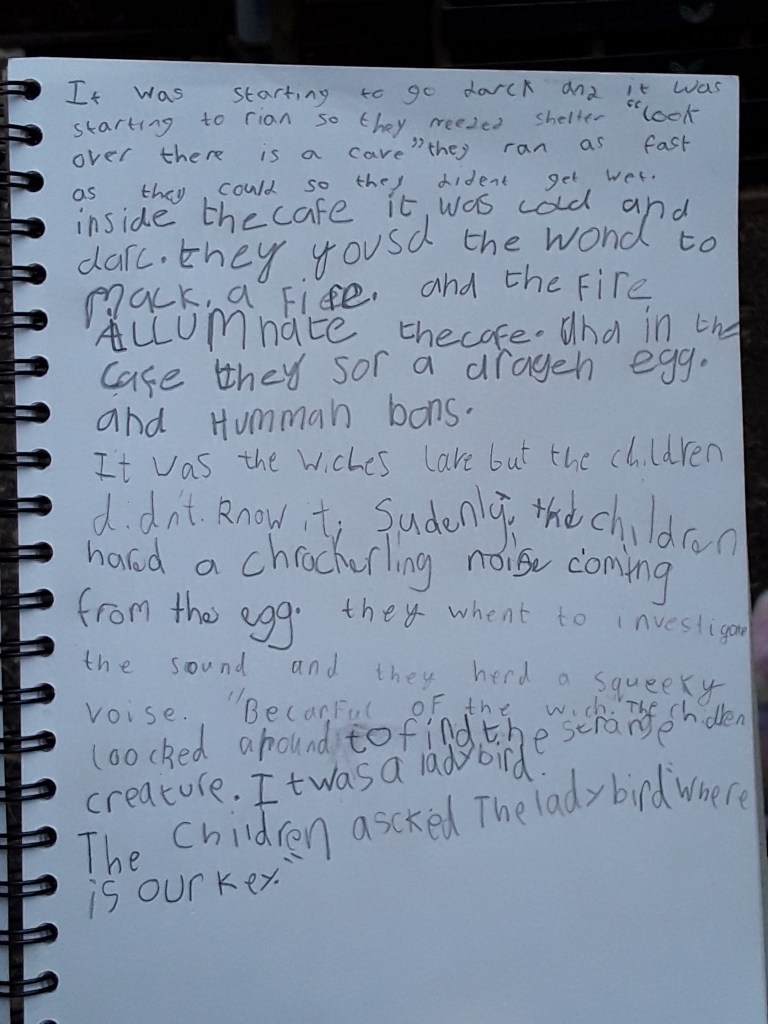 It was starting to go darck and it was
starting to rian so they needed shelter "look
over there is a cave" they ran as fast
as they could so they dident get wet.
inside thecafe it was cold and
darc. they yousd the wond to
mack. a Fire. and the FiRE
ALLUMnate thecafe. And in the
cafe they sor a dragen egg.
and Humman bons.
It vas the wiches lare but the children
didn't. know it. Sudenly, the children
hared a chrockerling noise coming
from the egg. they whent to investigate
the sound and they herd a squeeky
voise. "Becarful OF the wich. The Children
loocked around to find the strange
creature. It was a ladybird.
The Children ascked The ladybird "where
is our key."